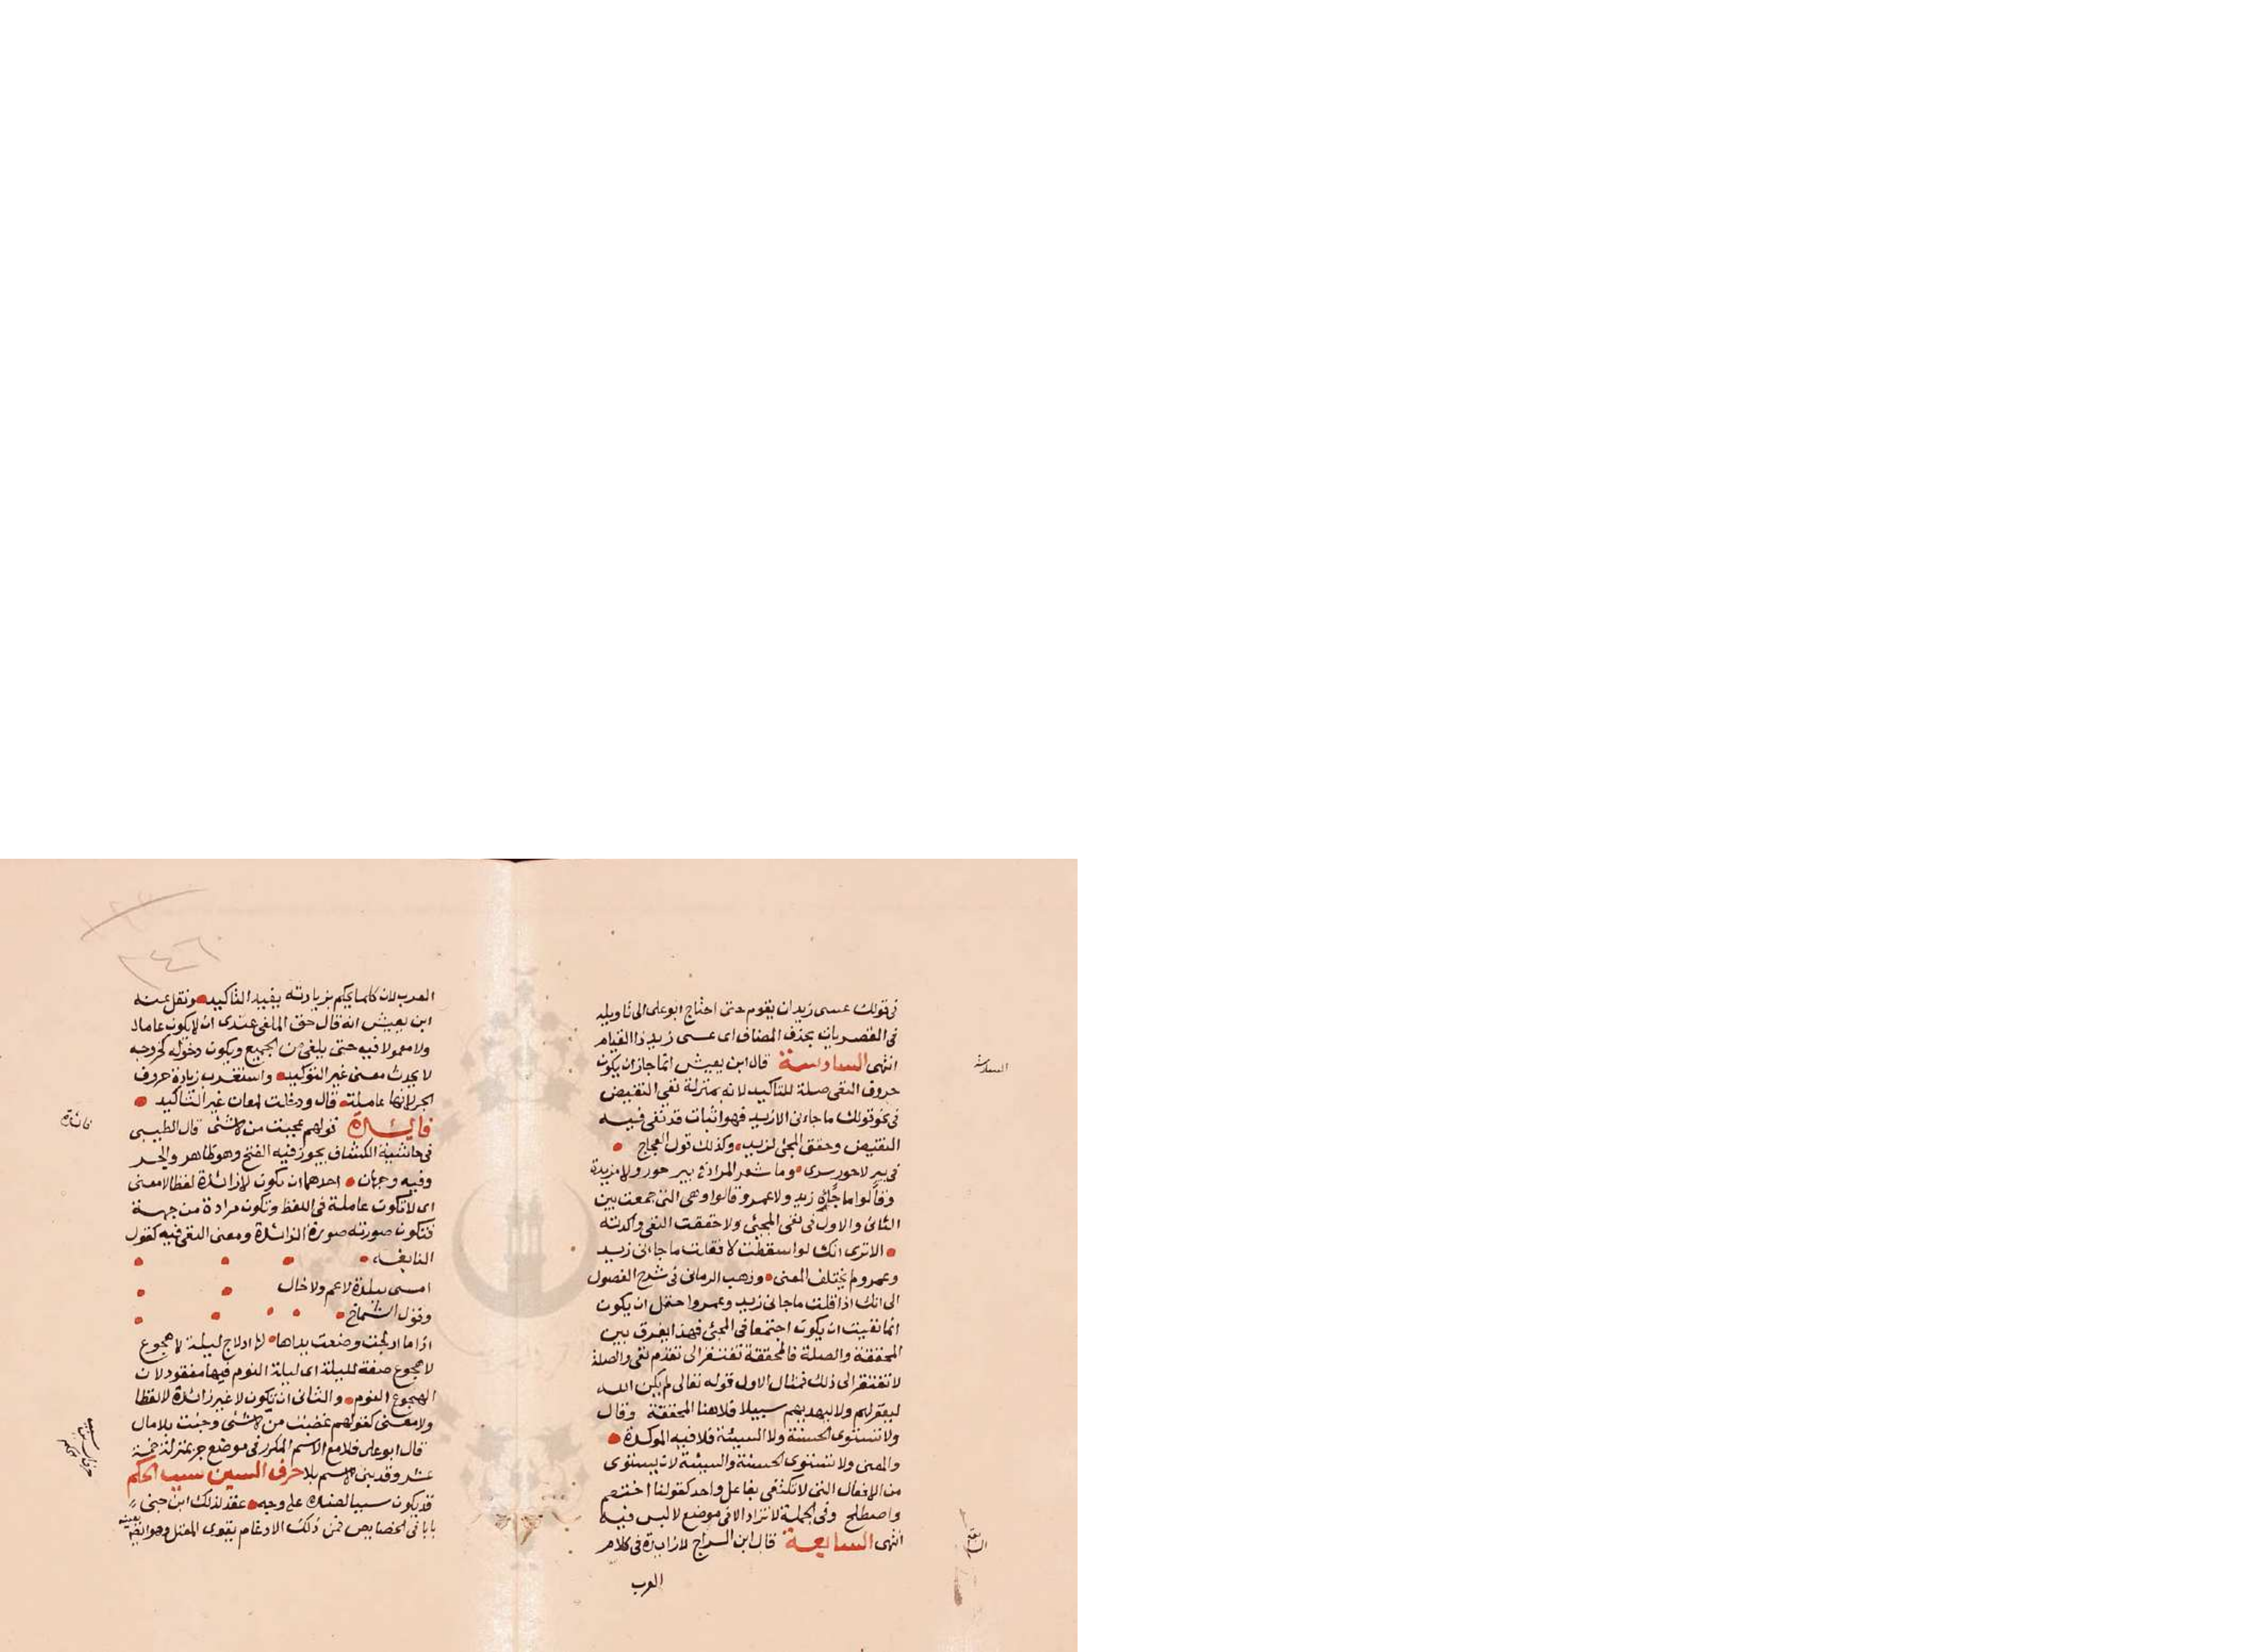 فى قولك عسى زيد ان يقوم حتى احتاج ابو على الى تاويله
فى القصريات بحذف المضاف اى عسى زيد ذا القيام
انتهى السادسة قال ابن يعيش انما جاز ان يكون
حروف النفى صلة للتاكيد لانه بمنزلة نفى النقيض
فى نحو قولك ما جاءنى الا زيد فهو اثبات قد نفى فيه
النقيض وحقق المجئ لزيد وكذلك قول العجاج
فى بير لا حور سرى وما شعر المراد فى بير حور ولا مزيدة
وقالوا ما جاء زيد ولا عمرو قالوا وهى التى جمعت بين
الثانى والاول فى نفى المجئى ولا حققت النفى واكدته
الا ترى انك لو اسقطت لا فقلت ما جانى زيد
وعمرو لم يختلف المعنى وذهب الرمانى فى شرح الفصول
الى انك اذا قلت ما جانى زيد وعمرو احتمل ان يكون
انما نفيت ان يكون اجتمعا فى المجئ فهذا يفرق بين
المحققة والصلة فالمحققة تفتقر الى تقدم نفى والصلة
لا تفتقر الى ذلك فمثال الاول قوله تعالى لم يكن الله
ليغفر لهم ولا ليهديهم سبيلا فلا هنا المحققة وقال
ولا تستوى الحسنة ولا السيئة فلا فيه الموكدة
والمعنى ولا تستوى الحسنة والسيئة لان يستوى
من الافعال التى لا تكتفى بفاعل واحد كقولنا اختصم
واصطلح وفى الجملة لا تزاد الا فى موضع لا لبس فيه
انتهى السابعة قال ابن السراج لا زايدة فى كلام
العرب
السادسة
السابعة
العرب لان كلما يحكم بزيادته يفيد التاكيد ونقل عنه
ابن يعيش انه قال حق الملغى عندى ان لا يكون عاملا
ولا معمولا فيه حتى يلغى من الجميع ويكون دخوله كخروجه
لا يحدث معنى غير التوكيد واستغرب زيادة حروف
الجر لانها عاملة قال ودخلت لمعان غير التاكيد
فايدة قولهم عجبت من لا شئ قال الطيبى
فى حاشية الكشاف يجوز فيه الفتح وهو ظاهر والجر
وفيه وجهان احدهما ان تكون لا زائدة لفظا لا معنى
اى لا تكون عاملة فى اللفظ وتكون مرادة من جهة
فتكون صورته صورة الزائدة ومعنى النفى فيه كقول
النابغه
امسى ببلدة لا عم ولا خال
وقول الشماخ
اذا ما ادلجت وضعت يداها لها ادلاج ليلة لا هجوع
لا هجوع صفة لليلة اى ليلة النوم فيها مفقود لان
الهجوع النوم والثانى ان تكون لا غير زائدة لا لفظا
ولا معنى كقولهم غضبت من لا شئ وجئت بلا مال
قال ابو على فلا مع الاسم المكرر فى موضع جر بمنزلة خمسة
عشر وقد بنى الاسم بلا حرف السين سبب الحكم
قد يكون سببا لضده على وجه عقد لذلك ابن جنى
بابا فى الخصايص فمن ذلك الادغام يقوى المعتل وهو ايضا
بعينه
فائدة
حرف السين سبب الحكم